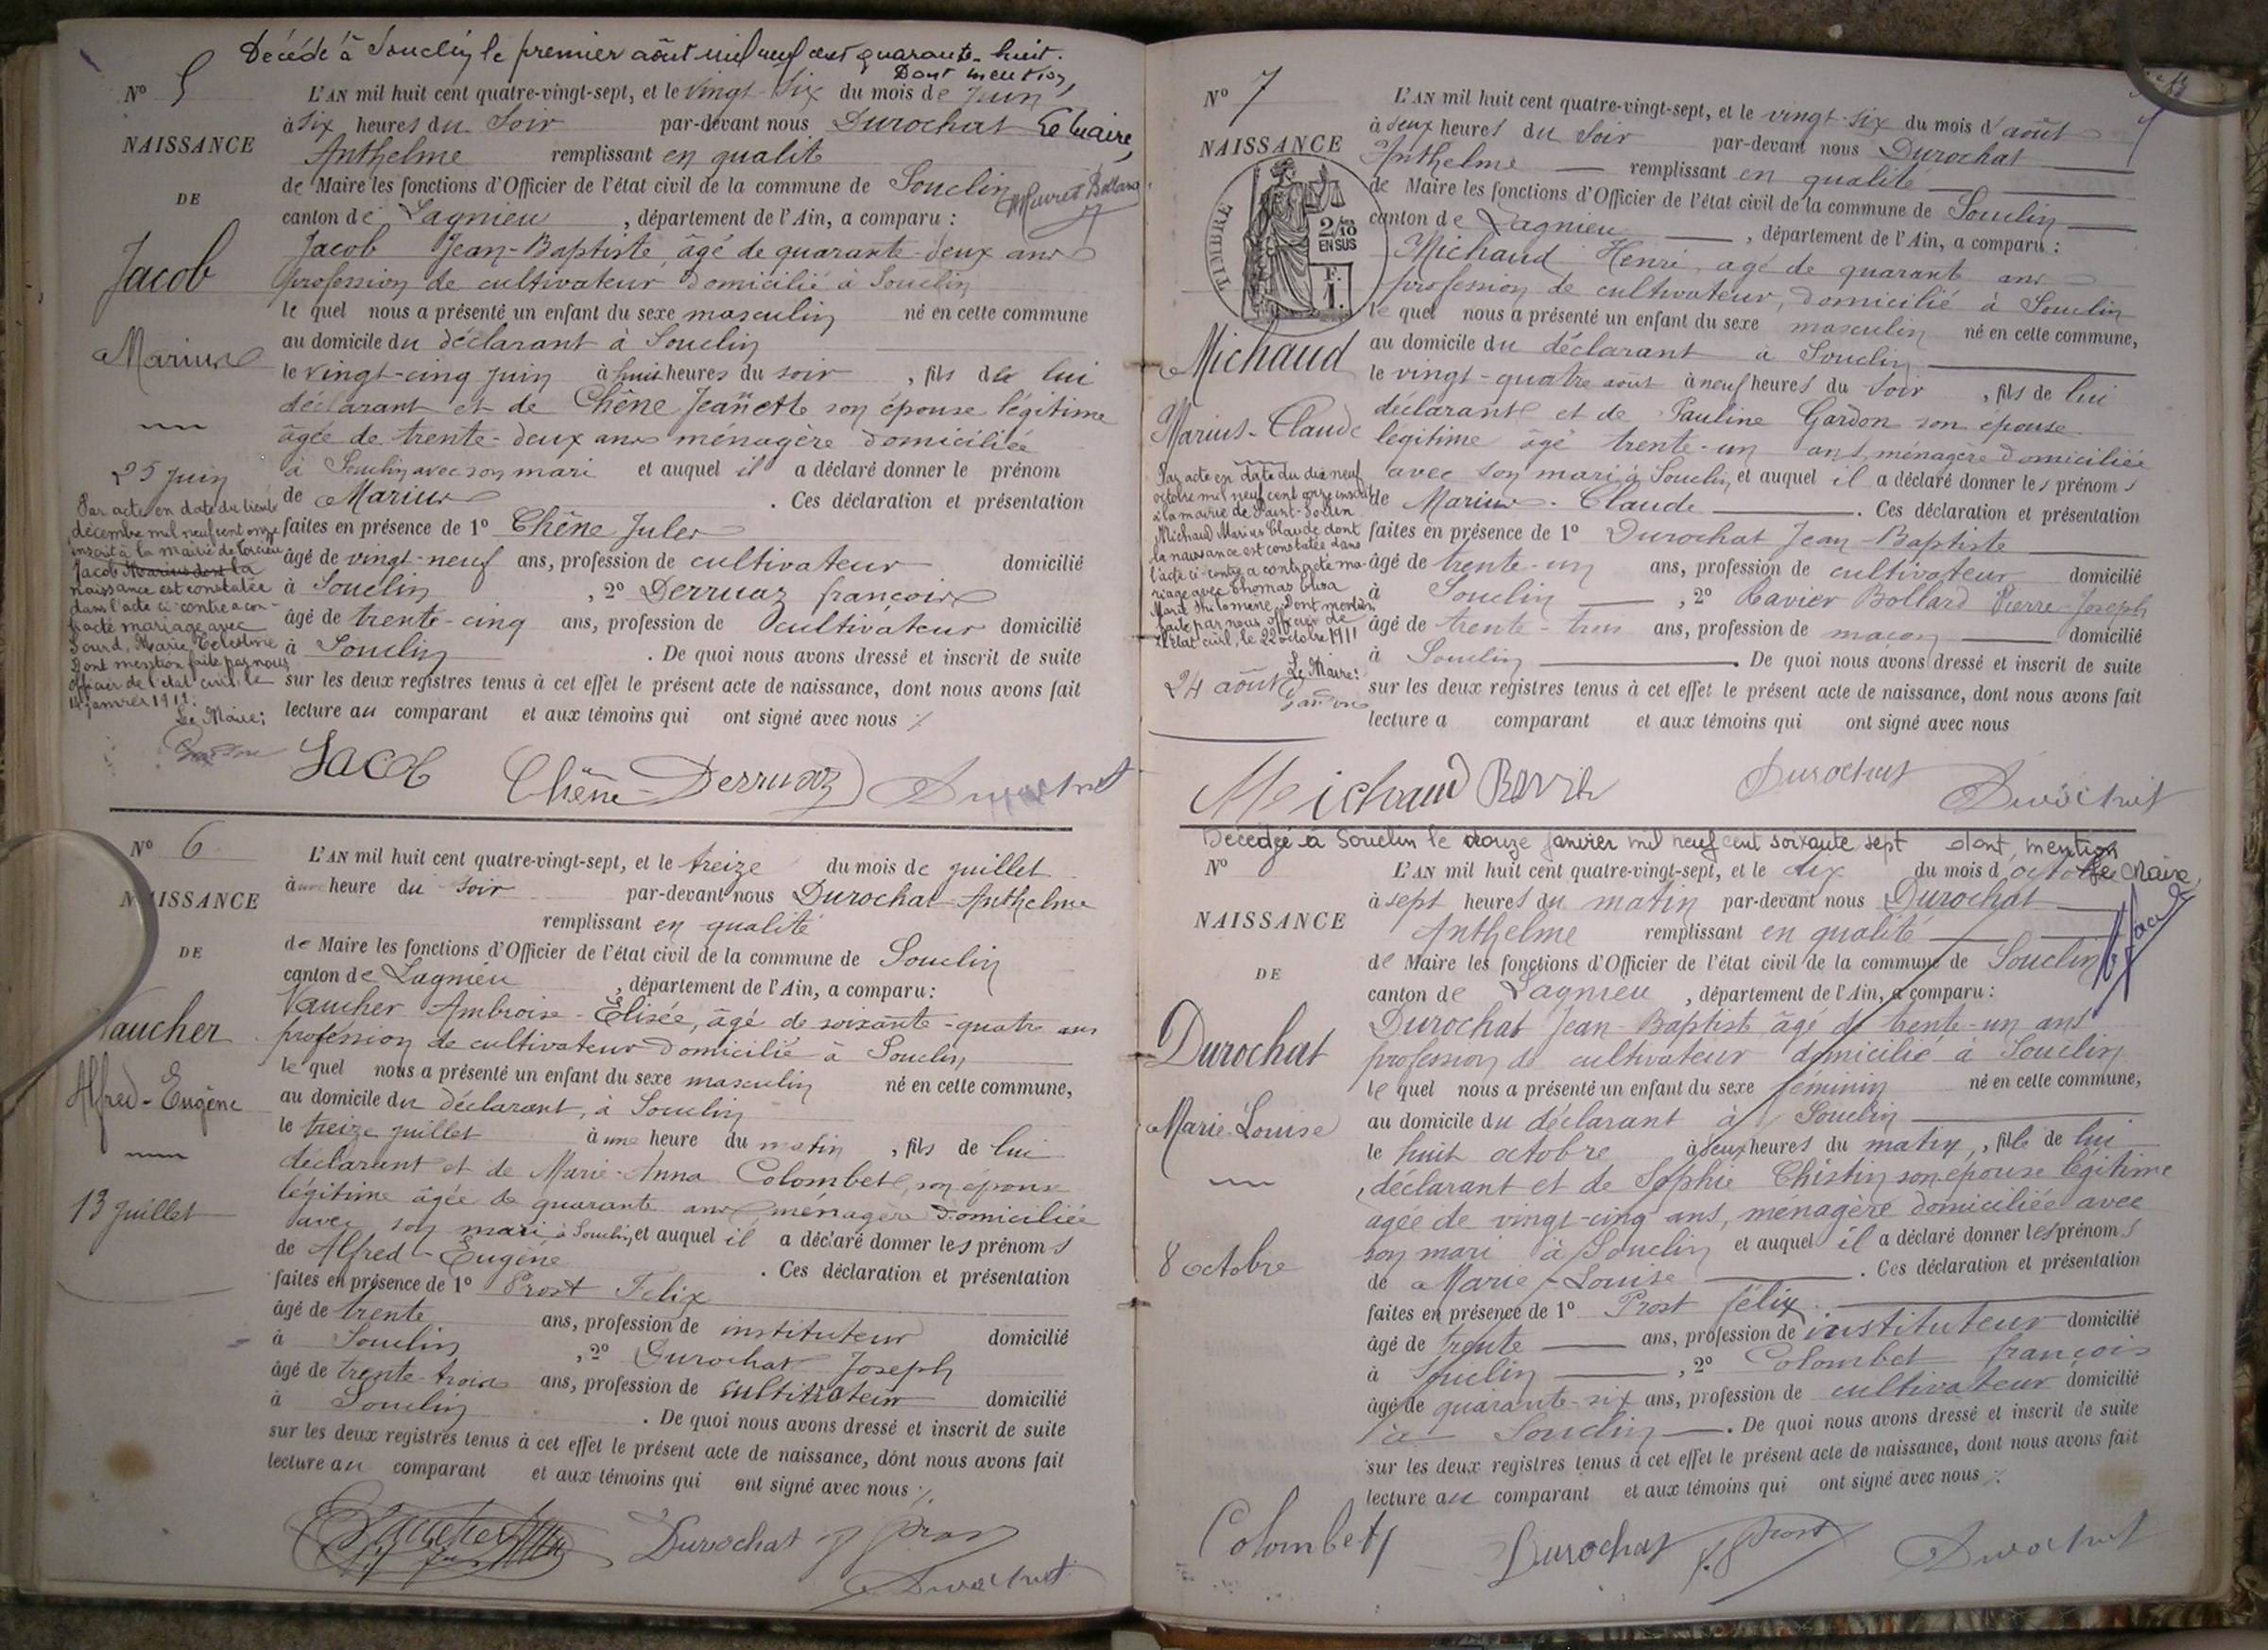 Décédé à Souclin le premier août mil neuf cent quarante-huit.
Dont mention,
Le Maire,
N° 5
NAISSANCE
DE
Jacob
Marius
25 juin
Par acte en date du trente
décembre mil neuf cent onze
inscrit à la mairie de Torcieu
Jacob Marius dont la
naissance est constatée
dans l'acte ci-contre a con-
tracté mariage avec
Sourd, Marie Célestine
Dont mention faite par nous
officier de l'état civil, le
14 janvier 1912.
Le Maire;
L'AN mil huit cent quatre-vingt-sept, et le vingt-six du mois de juin
à six heures du soir par-devant nous Durochat
Anthelme remplissant en qualité
de Maire les fonctions d'Officier de l'état civil de la commune de Souclin
canton de Lagnieu, département de l'Ain, a comparu :
Jacob Jean-Baptiste, âgé de quarante-deux ans
profession de cultivateur domicilié à Souclin
lequel nous a présenté un enfant du sexe masculin né en cette commune
au domicile du déclarant à Souclin
le vingt-cinq juin à huit heures du soir, fils de lui
déclarant et de Chêne Jeanette son épouse légitime
âgée de trente-deux ans ménagère domiciliée
à Souclin avec son mari et auquel il a déclaré donner le prénom
de Marius. Ces déclaration et présentation
faites en présence de 1° Chêne Jules
âgé de vingt-neuf ans, profession de cultivateur domicilié
à Souclin, 2° Derruaz françois
âgé de trente-cinq ans, profession de cultivateur domicilié
à Souclin. De quoi nous avons dressé et inscrit de suite
sur les deux registres tenus à cet effet le présent acte de naissance, dont nous avons fait
lecture au comparant et aux témoins qui ont signé avec nous ./.
Jacob Chêne Derruaz Durochat
N° 6
NAISSANCE
DE
Vaucher
Alfred-Eugène
13 juillet
L'AN mil huit cent quatre-vingt-sept, et le treize du mois de juillet
à une heure du soir par-devant nous Durochat Anthelme
remplissant en qualité
de Maire les fonctions d'Officier de l'état civil de la commune de Souclin
canton de Lagnieu, département de l'Ain, a comparu :
Vaucher Ambroise-Élisée, âgé de soixante-quatre ans
profession de cultivateur domicilié à Souclin
lequel nous a présenté un enfant du sexe masculin né en cette commune,
au domicile du déclarant, à Souclin
le treize juillet à une heure du matin, fils de lui
déclarant et de Marie-Anna Colombet, son épouse
légitime âgée de quarante ans ménagère domiciliée
avec son mari à Souclin, et auquel il a déclaré donner les prénoms
de Alfred-Eugène. Ces déclaration et présentation
faites en présence de 1° Prost Felix
âgé de trente ans, profession de instituteur domicilié
à Souclin, 2° Durochat Joseph
âgé de trente-trois ans, profession de cultivateur domicilié
à Souclin. De quoi nous avons dressé et inscrit de suite
sur les deux registres tenus à cet effet le présent acte de naissance, dont nous avons fait
lecture au comparant et aux témoins qui ont signé avec nous ./.
Vaucher Durochat F Prost
Durochat
N° 7
NAISSANCE
TIMBRE
2/10
EN SUS
F.
1.
Michaud
Marius-Claude
Par acte en date du dix neuf
octobre mil neuf cent onze inscrit
à la mairie de Saint-Sorlin
Michaud Marius Claude dont
la naissance est constatée dans
l'acte ci-contre a contracté ma-
riage avec Thomas
Marie Philomène. Dont mention
faite par nous officier de
l'état civil, le 22 octobre 1911
Le Maire:
24 août
L'AN mil huit cent quatre-vingt-sept, et le vingt-six du mois d'août
à deux heures du soir par-devant nous Durochat
Anthelme remplissant en qualité
de Maire les fonctions d'Officier de l'état civil de la commune de Souclin
canton de Lagnieu, département de l'Ain, a comparu :
Michaud Henri âgé de quarant ans
profession de cultivateur, domicilié à Souclin
lequel nous a présenté un enfant du sexe masculin né en cette commune,
au domicile du déclarant à Souclin
le vingt-quatre août à neuf heures du soir, fils de lui
déclarant et de Pauline Gardon son épouse
légitime âgé trente-un ans ménagère domiciliée
avec son mari à Souclin, et auquel il a déclaré donner les prénoms
de Marius-Claude. Ces déclaration et présentation
faites en présence de 1° Durochat Jean-Baptiste
âgé de trente-un ans, profession de cultivateur domicilié
à Souclin, 2° Ravier Bollard Pierre-Joseph
âgé de trente-trois ans, profession de maçon domicilié
à Souclin. De quoi nous avons dressé et inscrit de suite
sur les deux registres tenus à cet effet le présent acte de naissance, dont nous avons fait
lecture a comparant et aux témoins qui ont signé avec nous
Michaud Ravier Durochat Durochat
Décédée à Souclin le douze janvier mil neuf cent soixante sept dont mention
Le Maire,
N° 8
NAISSANCE
DE
Durochat
Marie-Louise
8 octobre
L'AN mil huit cent quatre-vingt-sept, et le dix du mois d'octobre
à sept heures du matin par-devant nous Durochat
Anthelme remplissant en qualité
de Maire les fonctions d'Officier de l'état civil de la commune de Souclin
canton de Lagnieu, département de l'Ain, a comparu :
Durochat Jean-Baptiste âgé de trente-un ans
profession de cultivateur domicilié à Souclin
lequel nous a présenté un enfant du sexe féminin né en cette commune,
au domicile du déclarant à Souclin
le huit octobre à deux heures du matin, fille de lui
déclarant et de Sophie Chistin son épouse légitime
agée de vingt-cinq ans, ménagère domiciliée avec
son mari à Souclin et auquel il a déclaré donner les prénoms
de Marie-Louise. Ces déclaration et présentation
faites en présence de 1° Prost félix
âgé de trente ans, profession de instituteur domicilié
à Souclin, 2° Colombet françois
âgé de quarante-six ans, profession de cultivateur domicilié
à Souclin. De quoi nous avons dressé et inscrit de suite
sur les deux registres tenus à cet effet le présent acte de naissance, dont nous avons fait
lecture au comparant et aux témoins qui ont signé avec nous ./.
Colombet Durochat F Prost Durochat